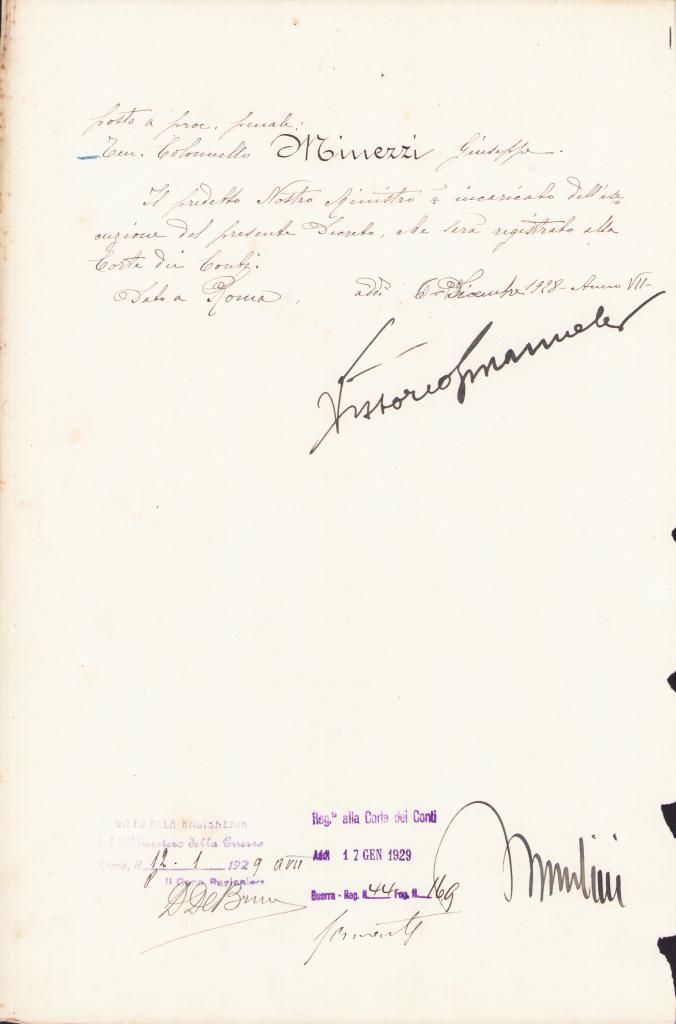 posto a proc. penale:
Ten. Colonnello Minezzi Giuseppe.
Il predetto Nostro Ministro è incaricato dell'ese=
cuzione del presente Decreto, che sarà registrato alla
Corte dei Conti.
Dato a Roma, addì 6 Dicembre 1928 - Anno VII -
Vittorio Emanuele
VISTO ALLA RAGIONERIA
del Ministero della Guerra
Roma, li 12 - 1 1929 a VII
Il Capo Ragioniere
Reg.to alla Corte dei Conti
Addì 17 GEN 1929
Guerra - Reg. N. 44 Fog. N. 169
Mussolini